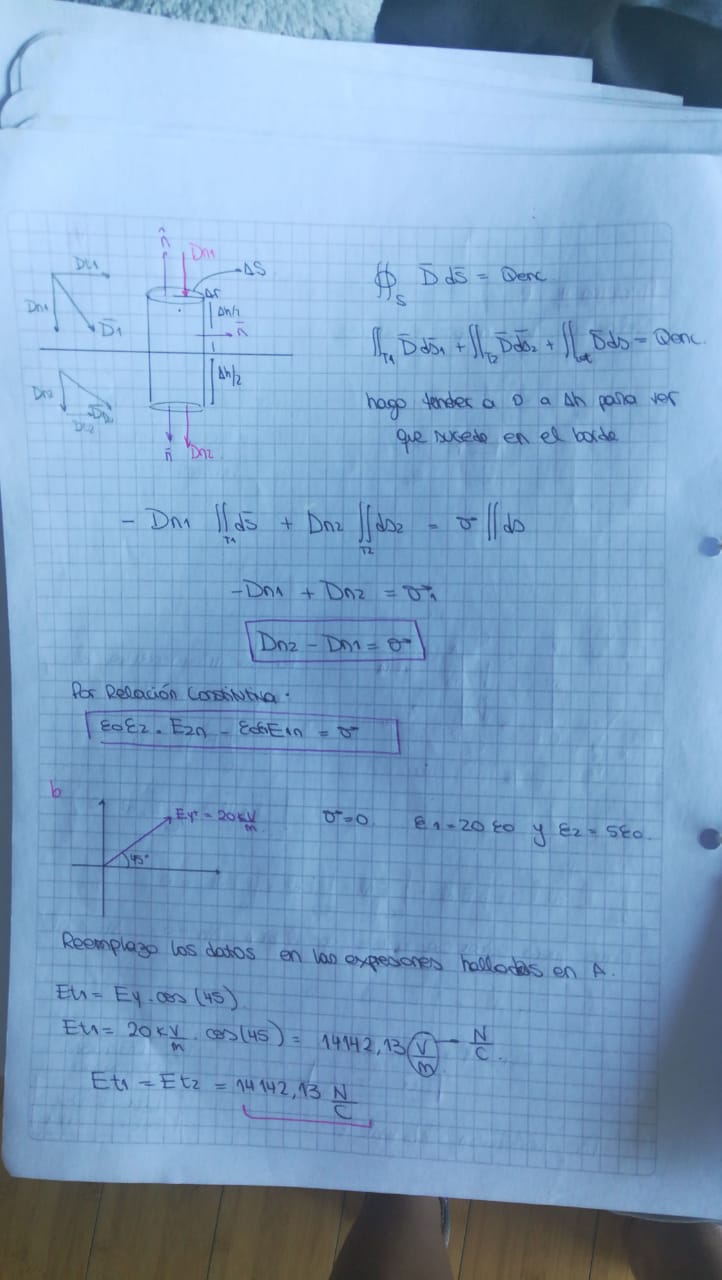 n̂ Dn1
Dt1 ΔS
Dn1 D̄1 Δh/2
n̄
Dn2 Δh/2
Dt2
n̄ Dn2
∯s D̄ ds̄ = Qenc
∬T1 D̄ ds̄1 + ∬T2 D̄ ds̄2 + ∬Lat D̄ ds = Qenc
hago tender a 0 a Δh para ver
que sucede en el borde
- Dn1 ∬T1 ds̄ + Dn2 ∬T2 ds2 = σ ∬ ds
-Dn1 + Dn2 = σ
Dn2 - Dn1 = σ
Por Relación Constitutiva.
ε0ε2 . E2n - ε0ε1E1n = σ
b
Ey = 20 kV/m σ=0 ε1=20 ε0 y ε2 = 5ε0.
45°
Reemplazo los datos en las expesiones halladas en A.
Et1 = Ey . cos (45)
Et1 = 20 kV/m . cos(45) = 14142,13 V/m - N/C.
Et1 = Et2 = 14142,13 N/C